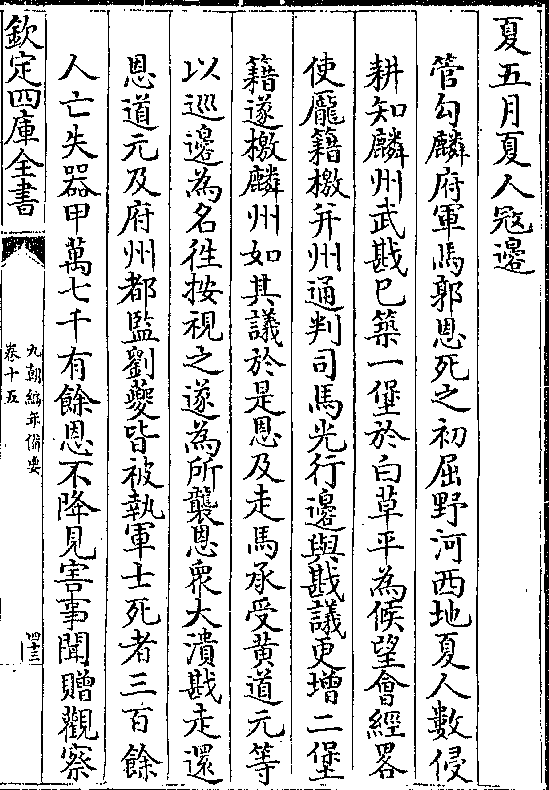 夏五月夏人寇邊
管勾麟府軍馬郭恩死之初屈野河西地夏人數侵
耕知麟州武戡已築一堡於白草平為候望會經畧
使龐籍檄并州通判司馬光行邊與戡議更增二堡
籍遂檄麟州如其議於是恩及走馬承受黄道元等
以巡邊為名徃按視之遂為所襲恩衆大潰戡走還
恩道元及府州都監劉夔皆被執軍士死者三百餘
人亡失器甲萬七千有餘恩不降見害事聞贈觀察
欽定四庫全書
九朝編年備要
卷十五
四十三